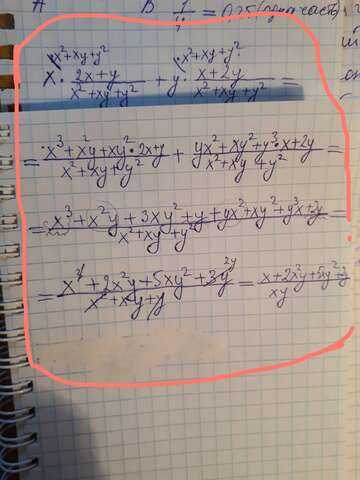 B 1/4 = 0,25 (
x^(x²+xy+y²) · (2x+y)/(x²+xy+y²) + y^(·x²+xy+y²) · (x+2y)/(x²+xy+y²) =
= (x³+x²y+xy²·2x+y)/(x²+xy+y²) + (yx²+xy²+y³·x+2y)/(x²+xy+y²) =
= (x³+x²y+3xy²+y+yx²+xy²+y³x+2y)/(x²+xy+y²) =
= (x³+2x²y+5xy²+3y 2y)/(x²+xy+y) = (x+2x²y+5xy²+2y)/(xy)